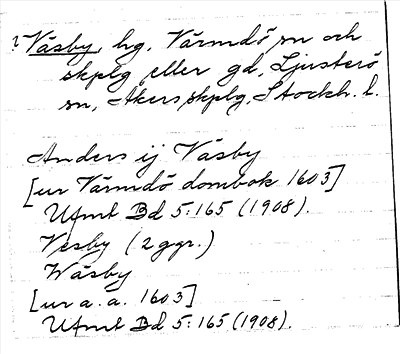 ? Väsby, hg, Värmdö sn och
skplg eller gd, Ljusterö
sn, Åkers skplg, Stockh. l.
Anders ij Väsby
[ur Värmdö dombok 1603]
Ufmt Bd 5:165 (1908).
Vesby (2 ggr.)
Wäsby
[ur a.a. 1603]
Ufmt Bd 5:165 (1908).